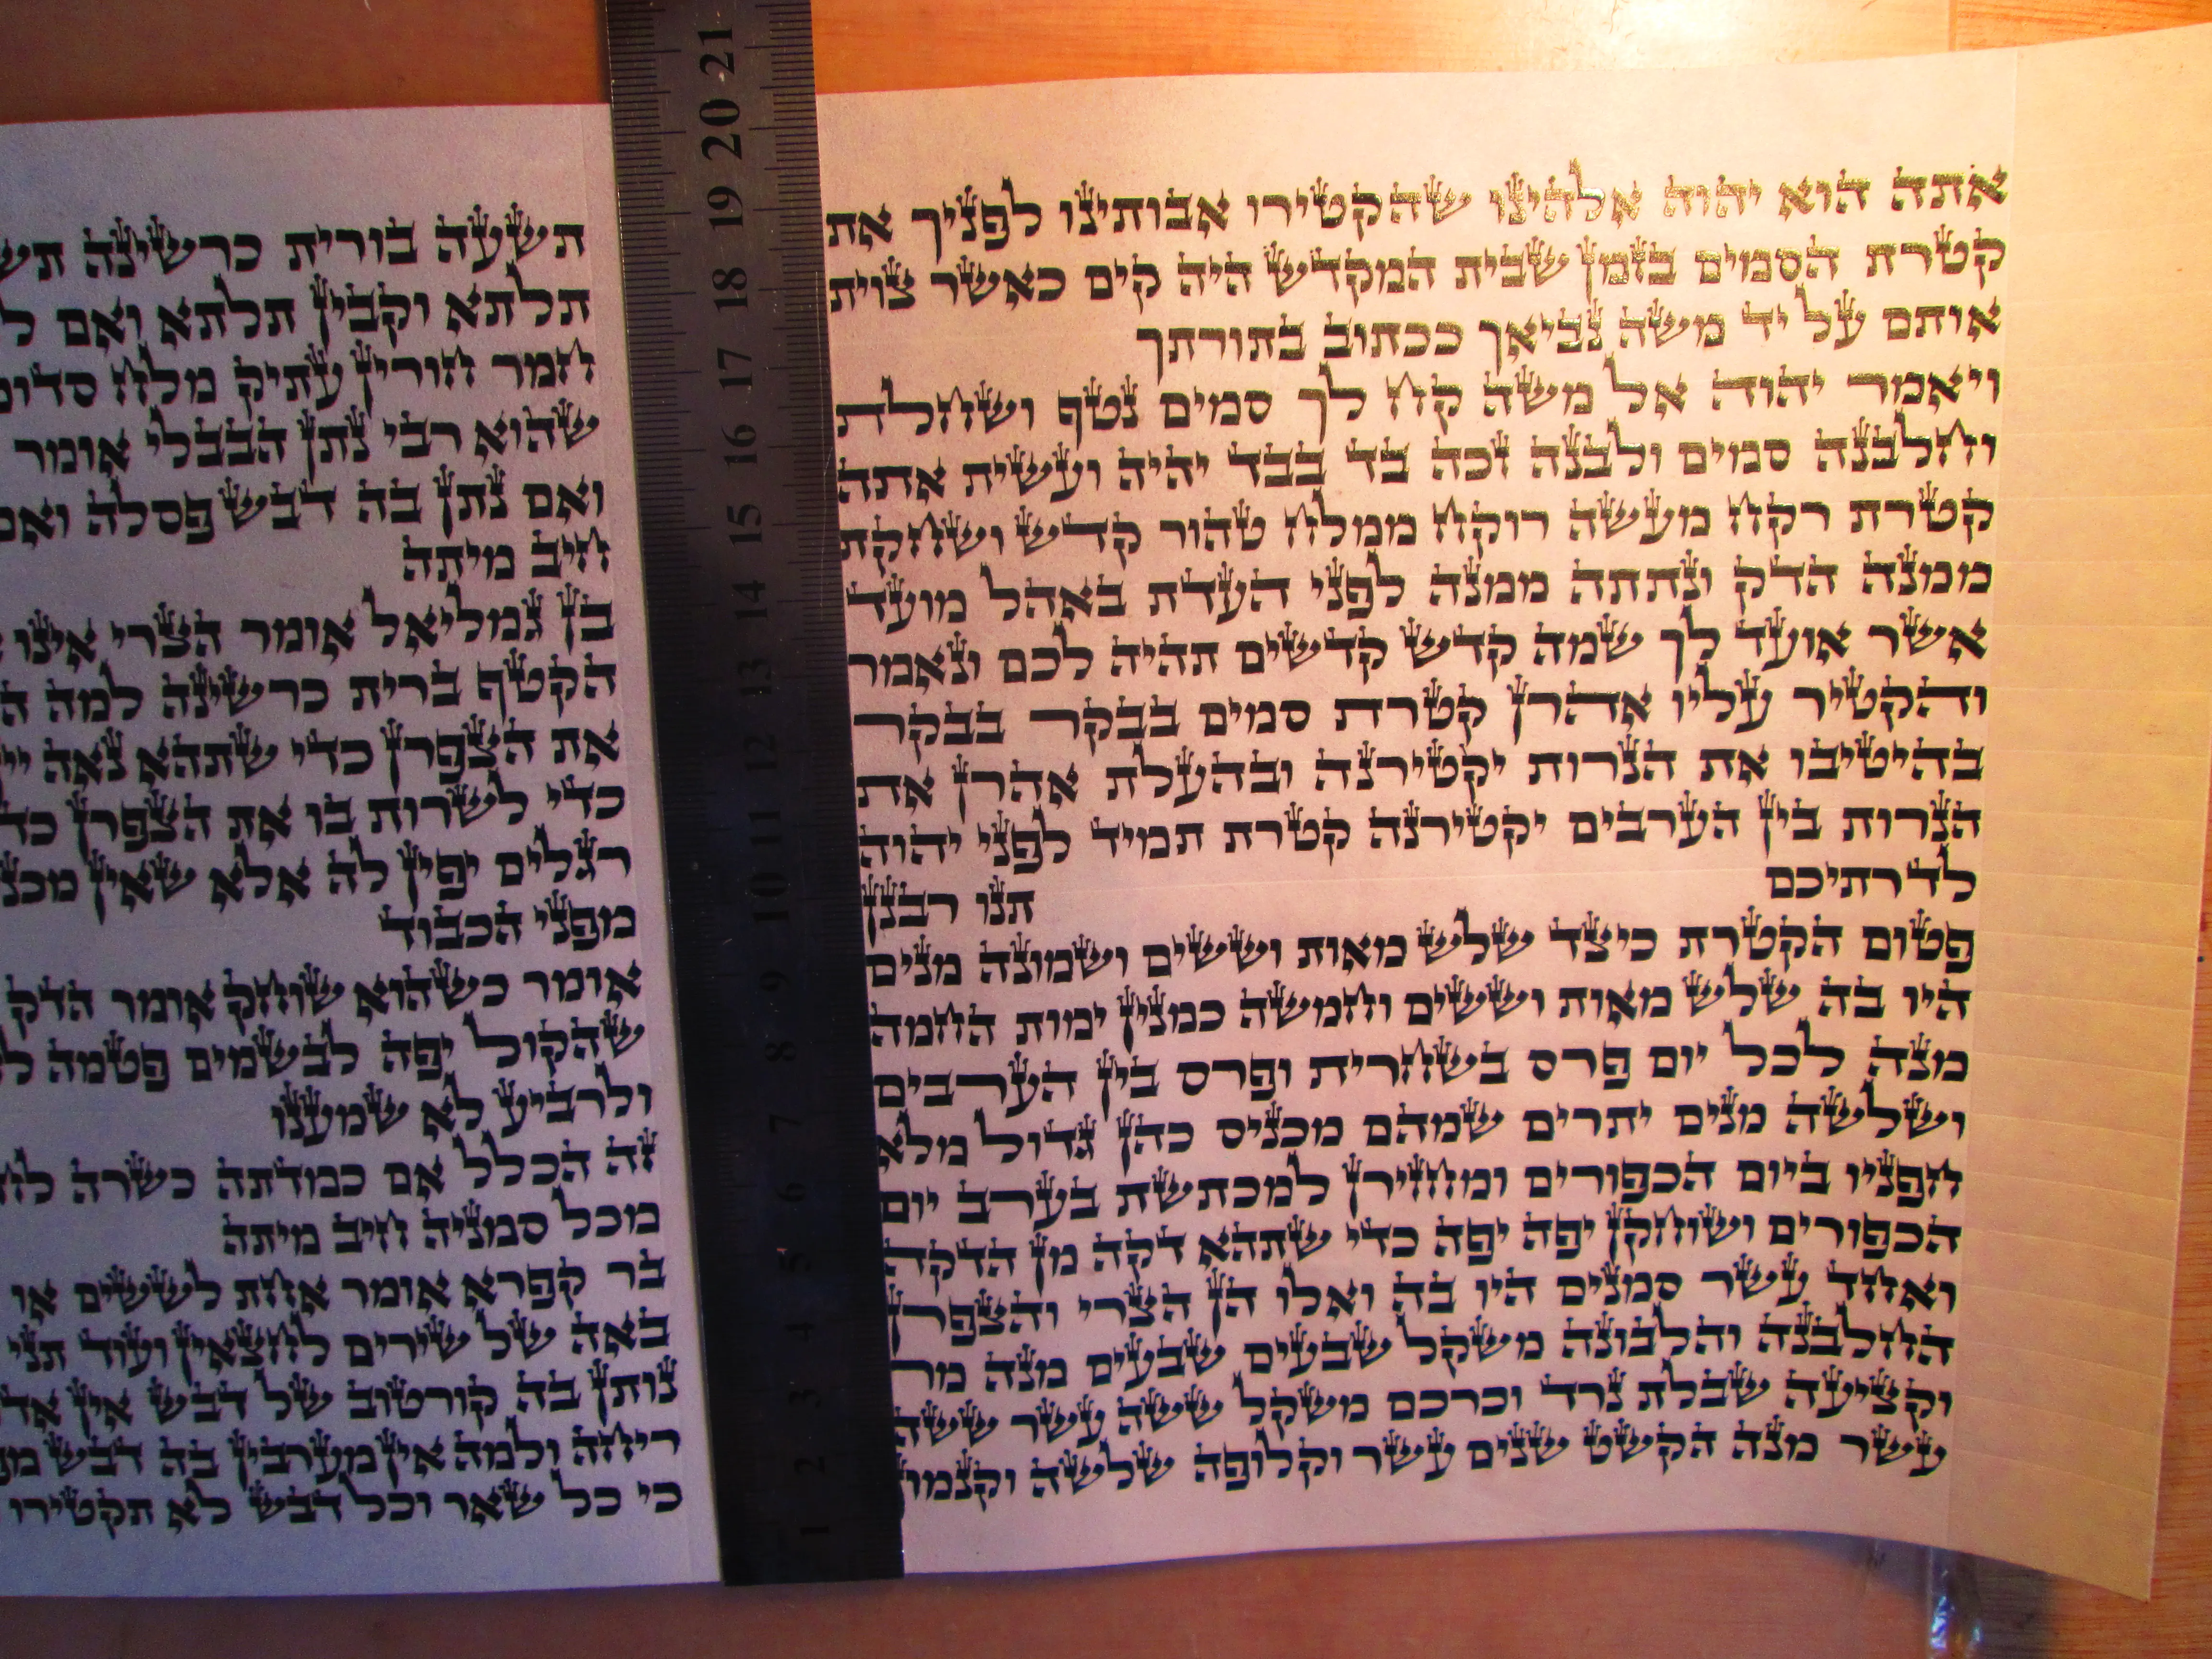 אתה הוא יהוה אלהינו שהקטירו אבותינו לפניך את
קטרת הסמים בזמן שבית המקדש היה קים כאשר צוית
אותם על יד משה נביאך ככתוב בתורתך
ויאמר יהוה אל משה קח לך סמים נטף ושחלת
וחלבנה סמים ולבנה זכה בד בבד יהיה ועשית אתה
קטרת רקח מעשה רוקח ממלח טהור קדש ושחקת
ממנה הדק ונתתה ממנה לפני העדת באהל מועד
אשר אועד לך שמה קדש קדשים תהיה לכם ונאמר
והקטיר עליו אהרן קטרת סמים בבקר בבקר
בהיטיבו את הנרות יקטירנה ובהעלת אהרן את
הנרות בין הערבים יקטירנה קטרת תמיד לפני יהוה
לדרתיכם תנו רבנן
פטום הקטרת כיצד שלש מאות וששים ושמונה מנים
היו בה שלש מאות וששים וחמשה כמנין ימות החמה
מנה לכל יום פרס בשחרית ופרס בין הערבים
ושלשה מנים יתרים שמהם מכניס כהן גדול מלא
חפניו ביום הכפורים ומחזירן למכתשת בערב יום
הכפורים ושוחקן יפה יפה כדי שתהא דקה מן הדקה
ואחד עשר סמנים היו בה ואלו הן הצרי והצפרן
החלבנה והלבונה משקל שבעים שבעים מנה מר
וקציעה שבלת נרד וכרכם משקל ששה עשר ששה
עשר מנה הקשט שנים עשר וקלופה שלשה וקנמון
תשעה בורית כרשינה
תלתא וקבין תלתא ואם
חמר חורין עתיק מלח
שהוא רבי נתן הבבלי אומר
ואם נתן בה דבש פסלה
חיב מיתה
בן גמליאל אומר הצרי אינו
הקטף ברית כרשינה למה
את הצפרן כדי שתהא נאה
כדי לשרות בו את הצפרן
רגלים יפין לה אלא שאין
מפני הכבוד
אומר כשהוא שוחק אומר הדק
שהקול יפה לבשמים פטמה
ולרביע לא שמענו
זה הכלל אם כמדתה כשרה
מכל סמניה חיב מיתה
בר קפרא אומר אחת לששים או
באה של שירים לחצאין ועוד תני
נותן בה קורטוב של דבש אין
ריחה ולמה אין מערבין בה דבש
כי כל שאר וכל דבש לא תקטירו
21
20
19
18
17
16
15
14
13
12
11
10
9
8
7
6
5
4
3
2
1